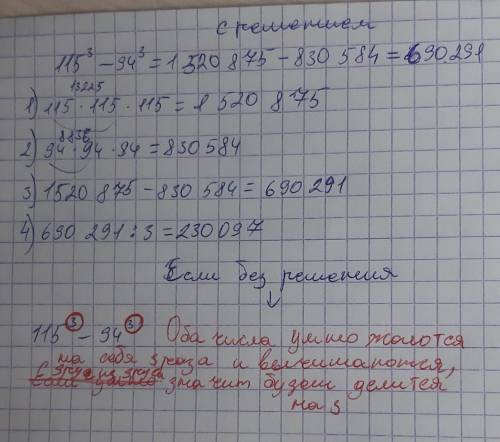 с решением
115³ - 94³ = 1 520 875 - 830 584 = 690 291
13225
1) 115 · 115 · 115 = 1 520 875
8836
2) 94 · 94 · 94 = 830 584
3) 1520 875 - 830 584 = 690 291
4) 690 291 : 3 = 230 097
Если без решения
115³ - 94³ Оба числа умножаются
на себя 3 раза и вычитаются,
значит будет делится
на 3